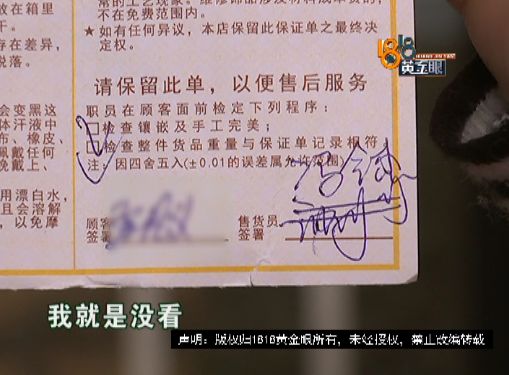 放在箱里
干。
存在差异，
脱落。
常的工艺现象。维修饰品涉及材料成本费的，
不在免费范围内。
★如有任何异议，本店保留此保证单之最终决
定权。
1818
黄金眼
请保留此单，以便售后服务
会变黑这
体汗液中
布、橡皮、
佩戴任何
晚戴上、
用漂白水，
且会溶解
，以免摩
职员在顾客面前检定下列程序：
检查镶嵌及手工完美；
检查整件货品重量与保证单记录相符
注：因四舍五入(±0.01的误差属允许范围)
顾客
签署
售货员
签署
我就是没看
声明：版权归1818黄金眼所有，未经授权，禁止改编转载